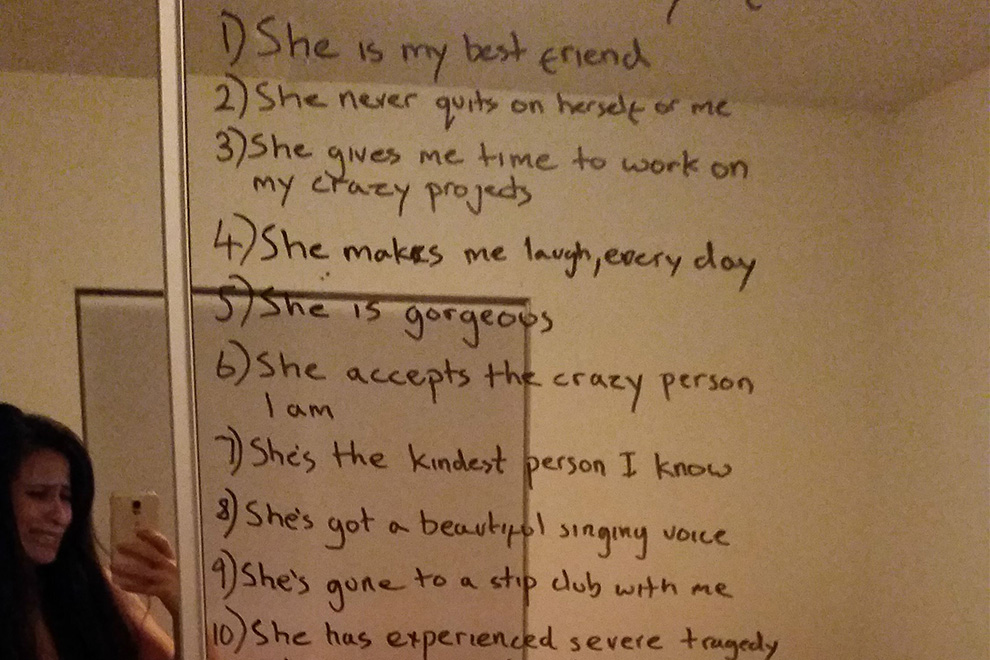 1) She is my best friend
2) She never quits on herself or me
3) She gives me time to work on
my crazy projects
4) She makes me laugh, every day
5) She is gorgeous
6) She accepts the crazy person
I am
7) She's the kindest person I know
8) She's got a beautiful singing voice
9) She's gone to a stip club with me
10) She has experienced severe tragedy